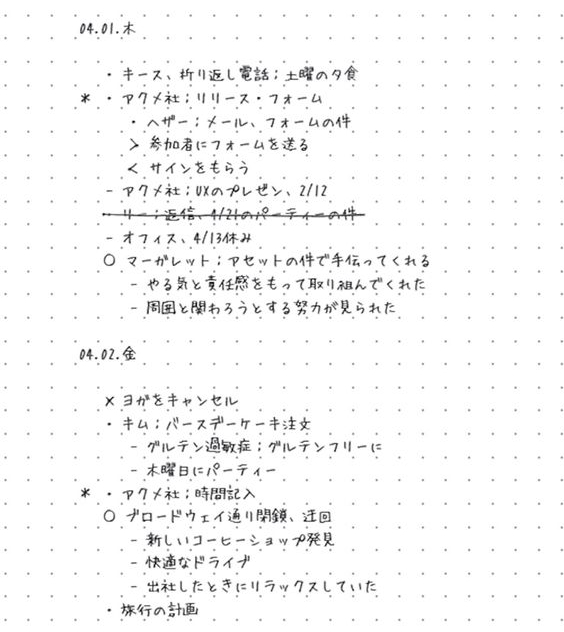 04.01.木
・キース、折り返し電話;土曜の夕食
* ・アクメ社;リリース・フォーム
・ヘザー;メール、フォームの件
> 参加者にフォームを送る
< サインをもらう
- アクメ社;UXのプレゼン、2/12
・リー;返信、4/21のパーティーの件
- オフィス、4/13休み
○ マーガレット;アセットの件で手伝ってくれる
- やる気と責任感をもって取り組んでくれた
- 周囲と関わろうとする努力が見られた
04.02.金
× ヨガをキャンセル
・キム;バースデーケーキ注文
- グルテン過敏症;グルテンフリーに
- 木曜日にパーティー
* ・アクメ社;時間記入
○ ブロードウェイ通り閉鎖、迂回
- 新しいコーヒーショップ発見
- 快適なドライブ
- 出社したときにリラックスしていた
・旅行の計画